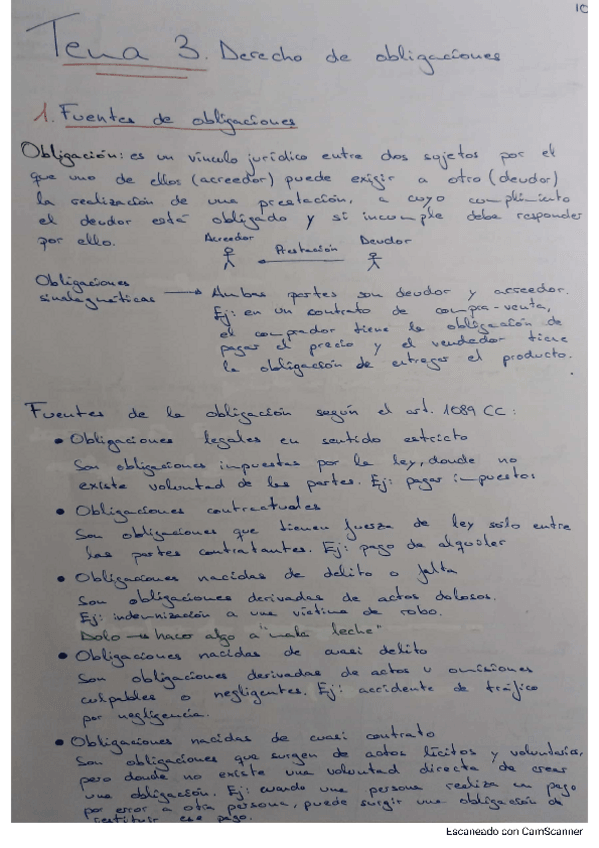 10
Tema 3. Derecho de obligaciones
1. Fuentes de obligaciones
Obligación: es un vínculo jurídico entre dos sujetos por el
que uno de ellos (acreedor) puede exigir a otro (deudor)
la realización de una prestación, a cuyo cumplimiento
el deudor está obligado y si incumple debe responder
por ello.
Acreedor Prestación Deudor
Obligaciones
sinalagmáticas → Ambas partes son deudor y acreedor.
Ej: en un contrato de compra-venta,
el comprador tiene la obligación de
pagar el precio y el vendedor tiene
la obligación de entregar el producto.
Fuentes de la obligación según el art. 1089 CC:
• Obligaciones legales en sentido estricto
Son obligaciones impuestas por la ley, donde no
existe voluntad de las partes. Ej: pagar impuestos
• Obligaciones contractuales
Son obligaciones que tienen fuerza de ley sólo entre
las partes contratantes. Ej: pago de alquiler
• Obligaciones nacidas de delito o falta
Son obligaciones derivadas de actos dolosos.
Ej: indemnización a una víctima de robo.
Dolo → hacer algo a "mala leche"
• Obligaciones nacidas de cuasi delito
Son obligaciones derivadas de actos u omisiones
culpables o negligentes. Ej: accidente de tráfico
por negligencia.
• Obligaciones nacidas de cuasi contrato
Son obligaciones que surgen de actos lícitos y voluntarios,
pero donde no existe una voluntad directa de crear
una obligación. Ej: cuando una persona realiza un pago
por error a otra persona, puede surgir una obligación de
restituir ese pago.
Escaneado con CamScanner